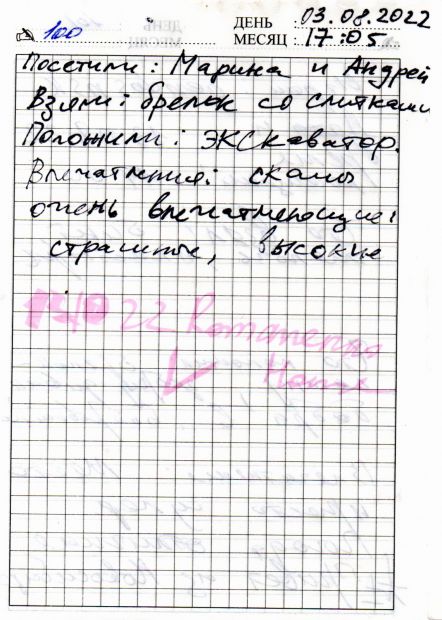 100 ДЕНЬ 03.08.2022
МЕСЯЦ 17:05
Посетили: Марина и Андрей
Взяли: брелок со слитками
Положили: экскаватор.
Впечатления: скалы
очень впечатляющие:
страшные, высокие
22